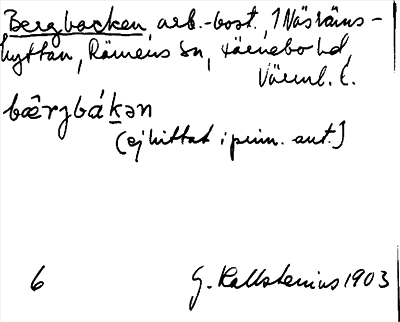 Bergbacken, arb.-bost., 1 Näsräms-
hyttan, Rämens sn, Färnebo hd,
Värml. l.
bæ̂rjbákən
(ej hittat i prim. ant.)
6 G. Kallstenius 1903